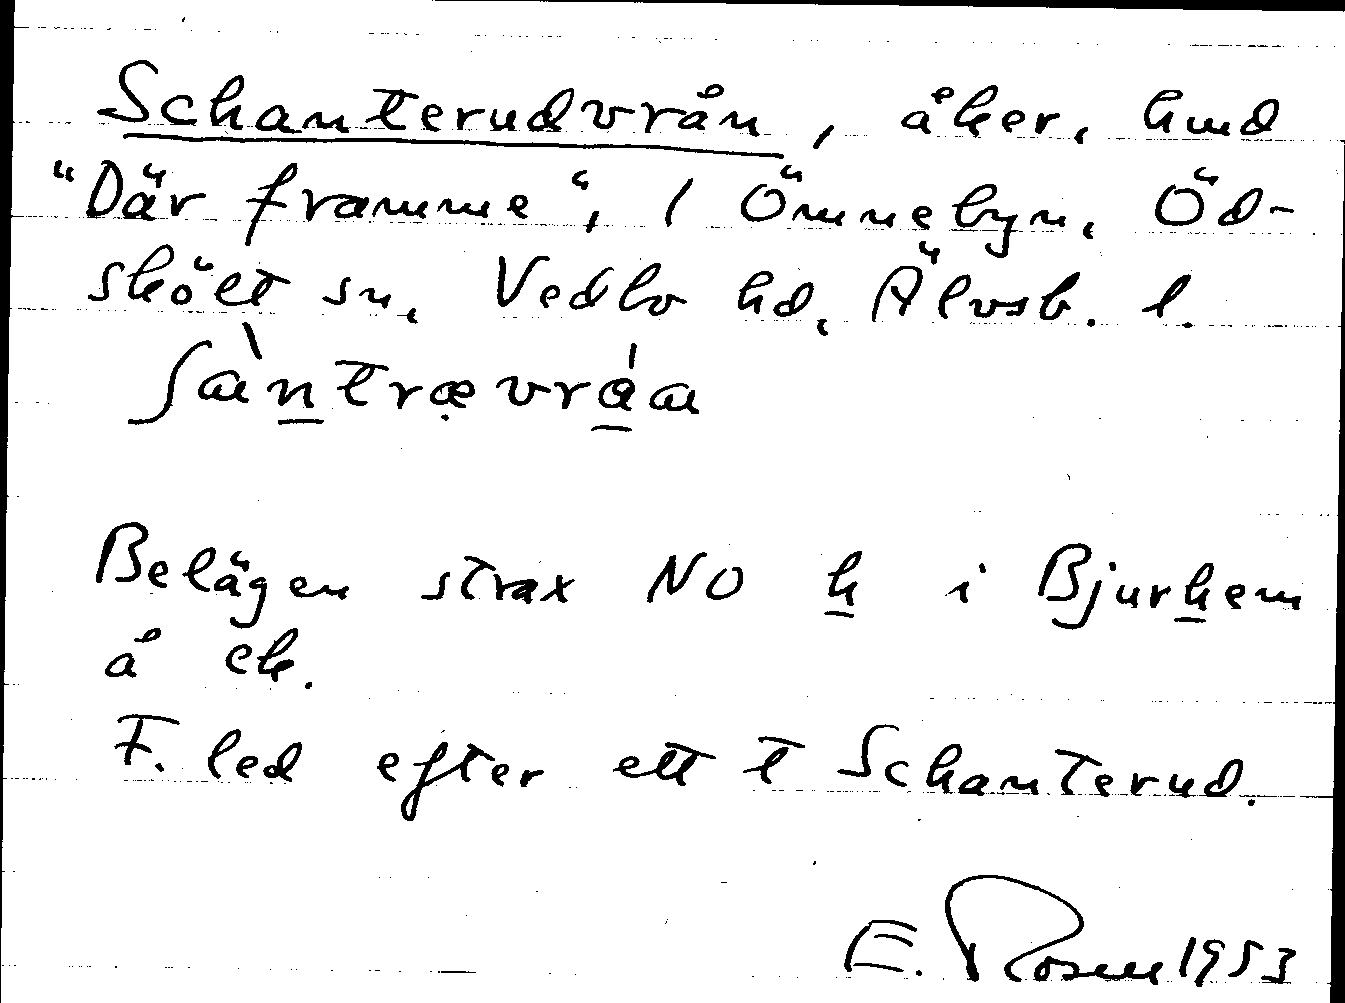 Schanterudvrån, åker, hmd
"Där framme", 1 Ömnebyn, Öd-
skölt sn, Vedbo hd, Älvsb. l.
ʃàntræ vráa
Belägen strax NO k i Bjurkem
å ek.
F. led efter ett t Schanterud.
E. Rosen 1953